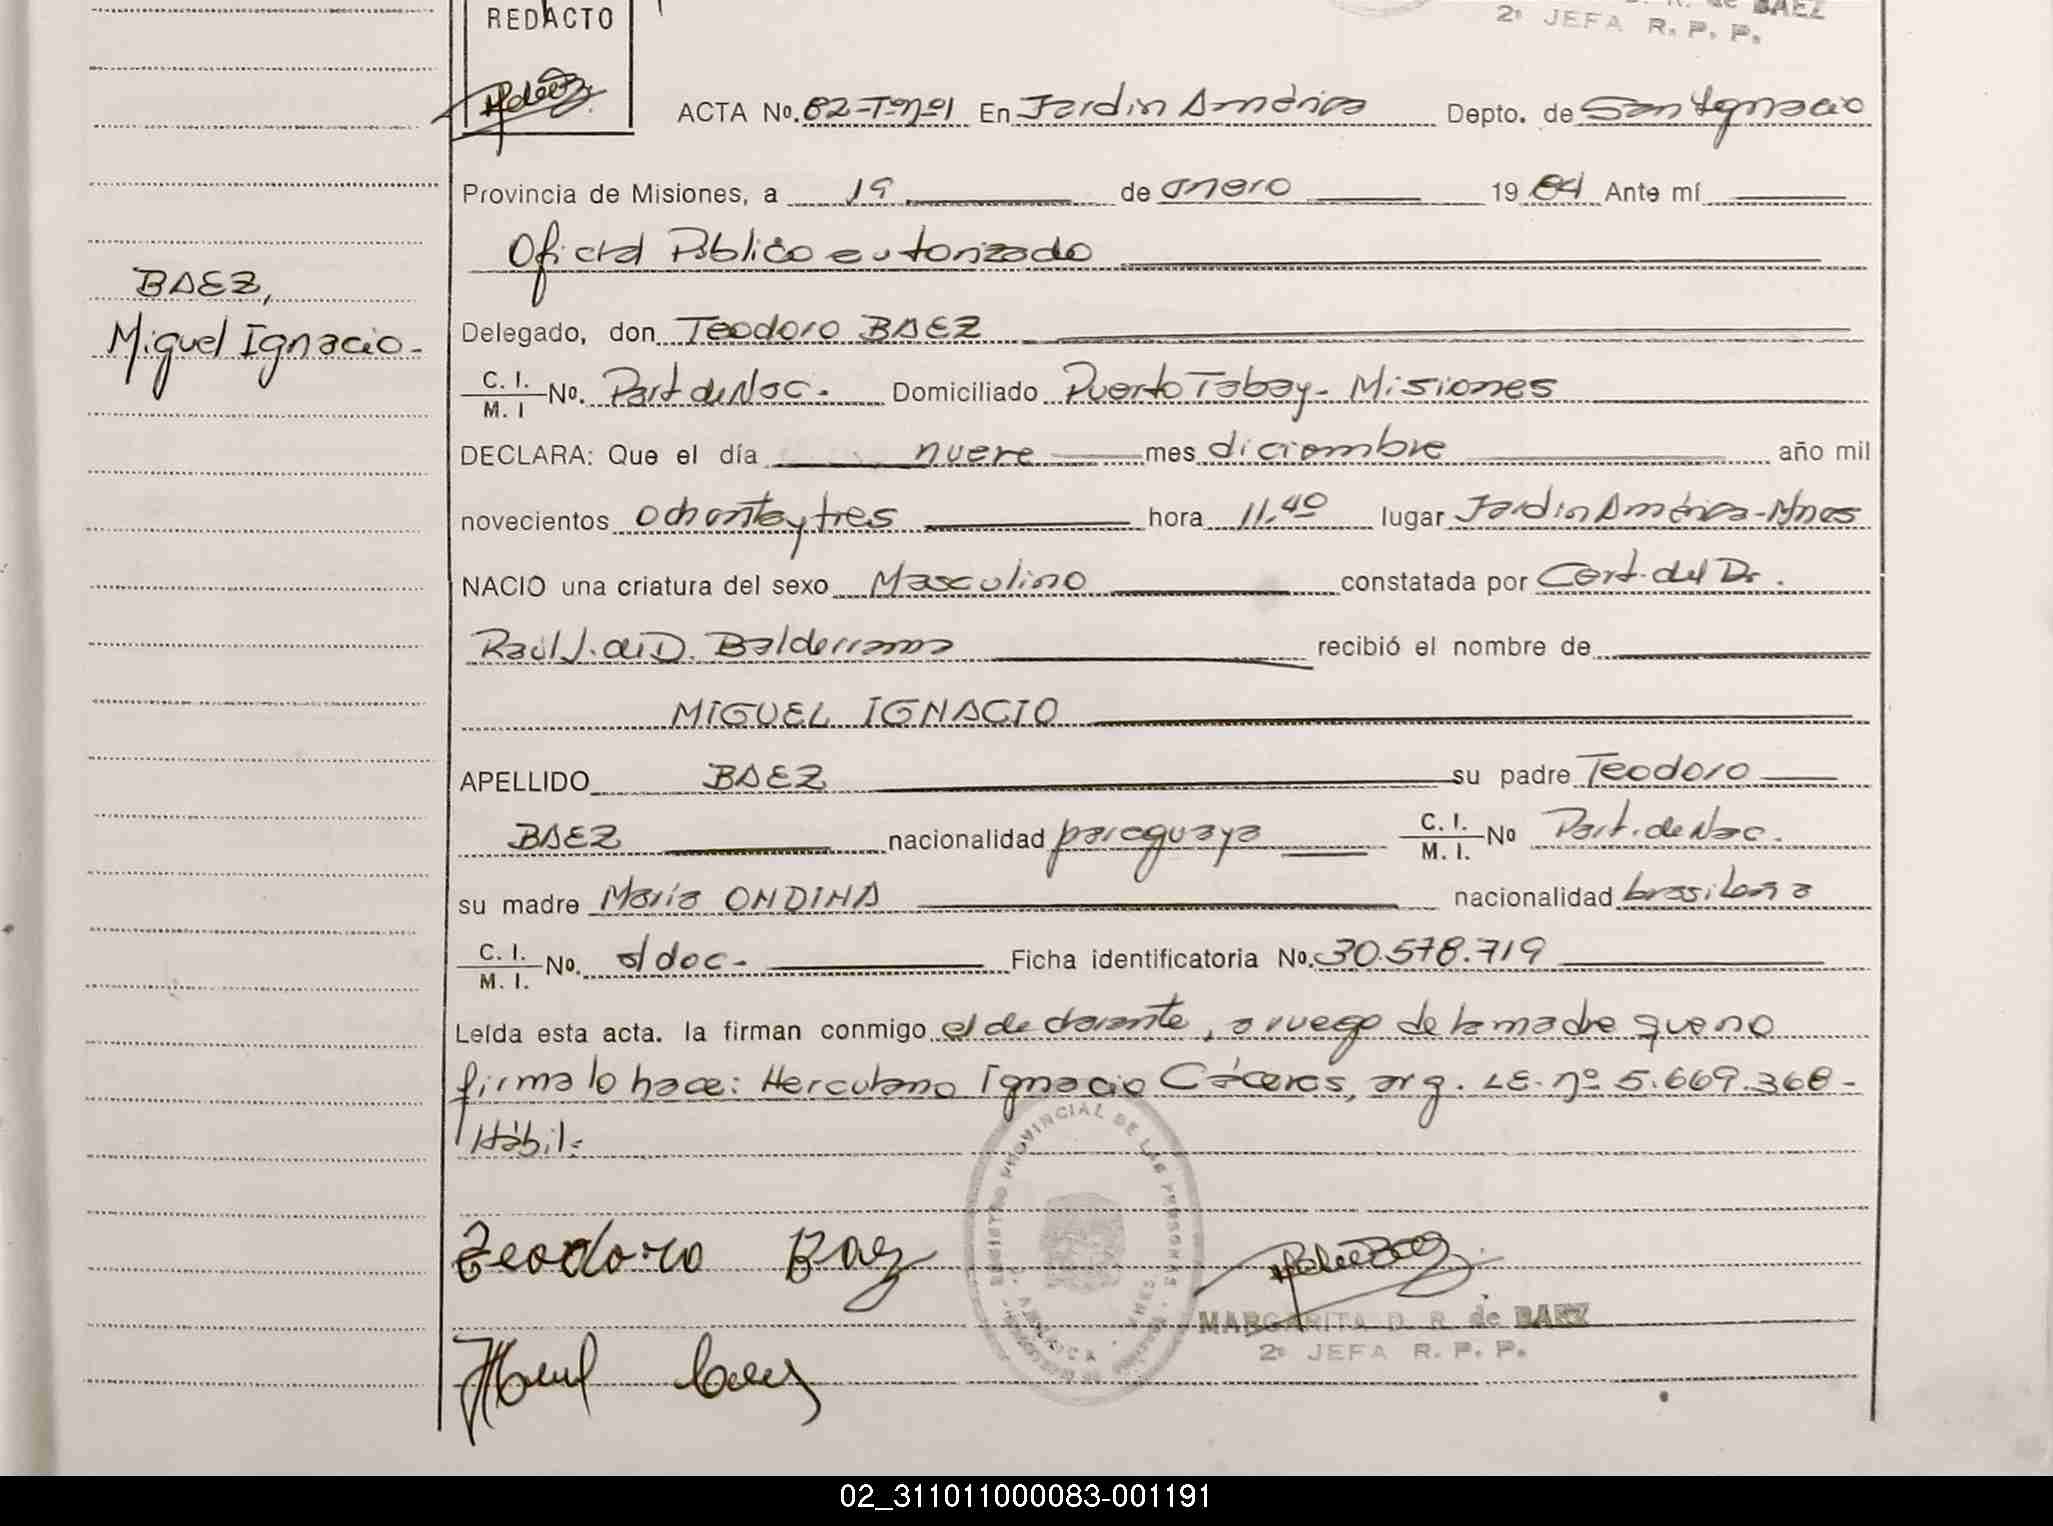 REDACTO
de BAEZ
2º JEFA R. P. P.
ACTA No. 82-Tº nº 1 En Jardin América Depto. de San Ignacio
Provincia de Misiones, a 19 de enero 1984 Ante mí
Oficial Público autorizado
BAEZ,
Miguel Ignacio-
Delegado, don Teodoro BAEZ
C. I.
M. I No. Part de Nac. Domiciliado Puerto Tabay - Misiones
DECLARA: Que el día nueve mes diciembre año mil
novecientos ochenta y tres hora 11.40 lugar Jardin América - Mnes
NACIO una criatura del sexo Masculino constatada por Cert. del Dr.
Raúl J. del D. Balderrama recibió el nombre de
MIGUEL IGNACIO
APELLIDO BAEZ su padre Teodoro
BAEZ nacionalidad paraguaya C. I.
M. I. No Part. de Nac.
su madre María ONDINA nacionalidad brasileña
C. I.
M. I. No. s/doc- Ficha identificatoria No. 30.578.719
Leída esta acta. la firman conmigo el declarante, a ruego de la madre que no
firma lo hace: Herculano Ignacio Cáceres, arg. LE. nº 5.669.368-
Hábil-
Teodoro Baez
REGISTRO PROVINCIAL DE LAS PERSONAS
AMERICA
MARGARITA D. R. de BAEZ
2º JEFA R. P. P.
02_311011000083-001191